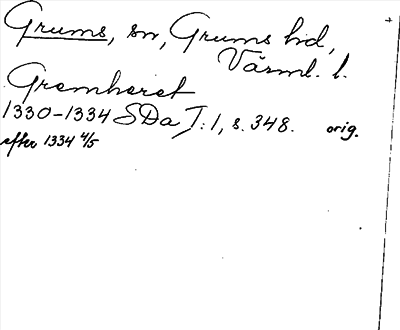 Grums, sn, Grums hd,
Värml. l.
Gremhæret
1330-1334 SDa I:1, s. 348. orig.
efter 1334 4/5